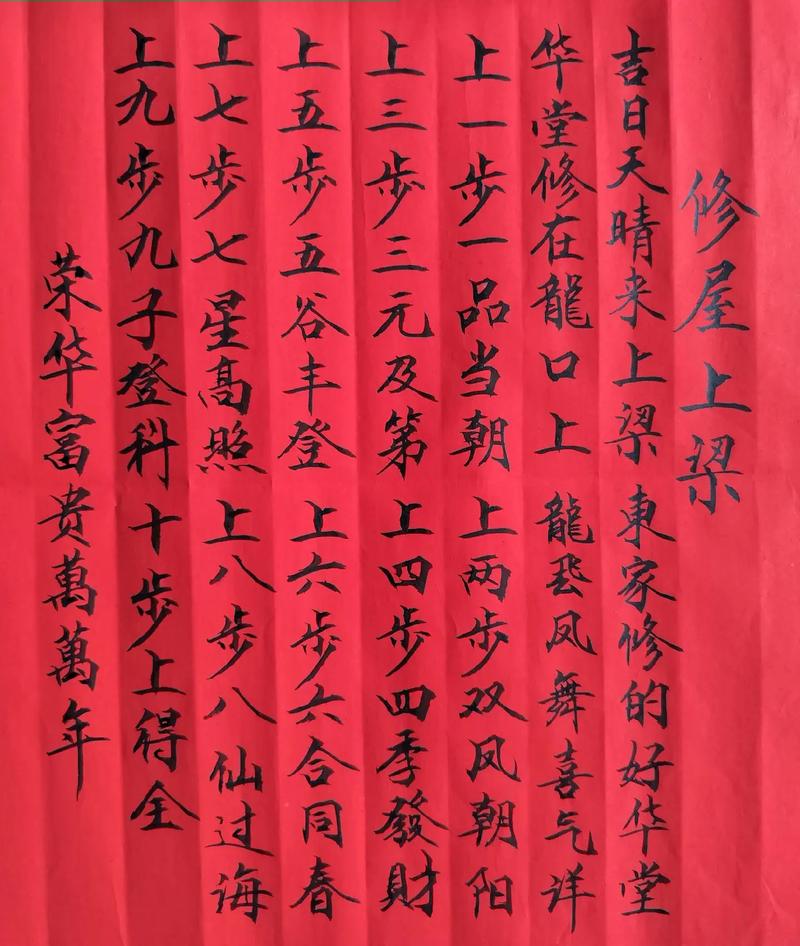 修屋上梁
吉日天晴来上梁 東家修的好华堂
华堂修在龍口上 龍飛凤舞喜气洋
上一步一品当朝 上两步双凤朝阳
上三步三元及第 上四步四季發財
上五步五谷丰登 上六步六合同春
上七步七星高照 上八步八仙过海
上九步九子登科十步上得全
荣华富贵萬萬年